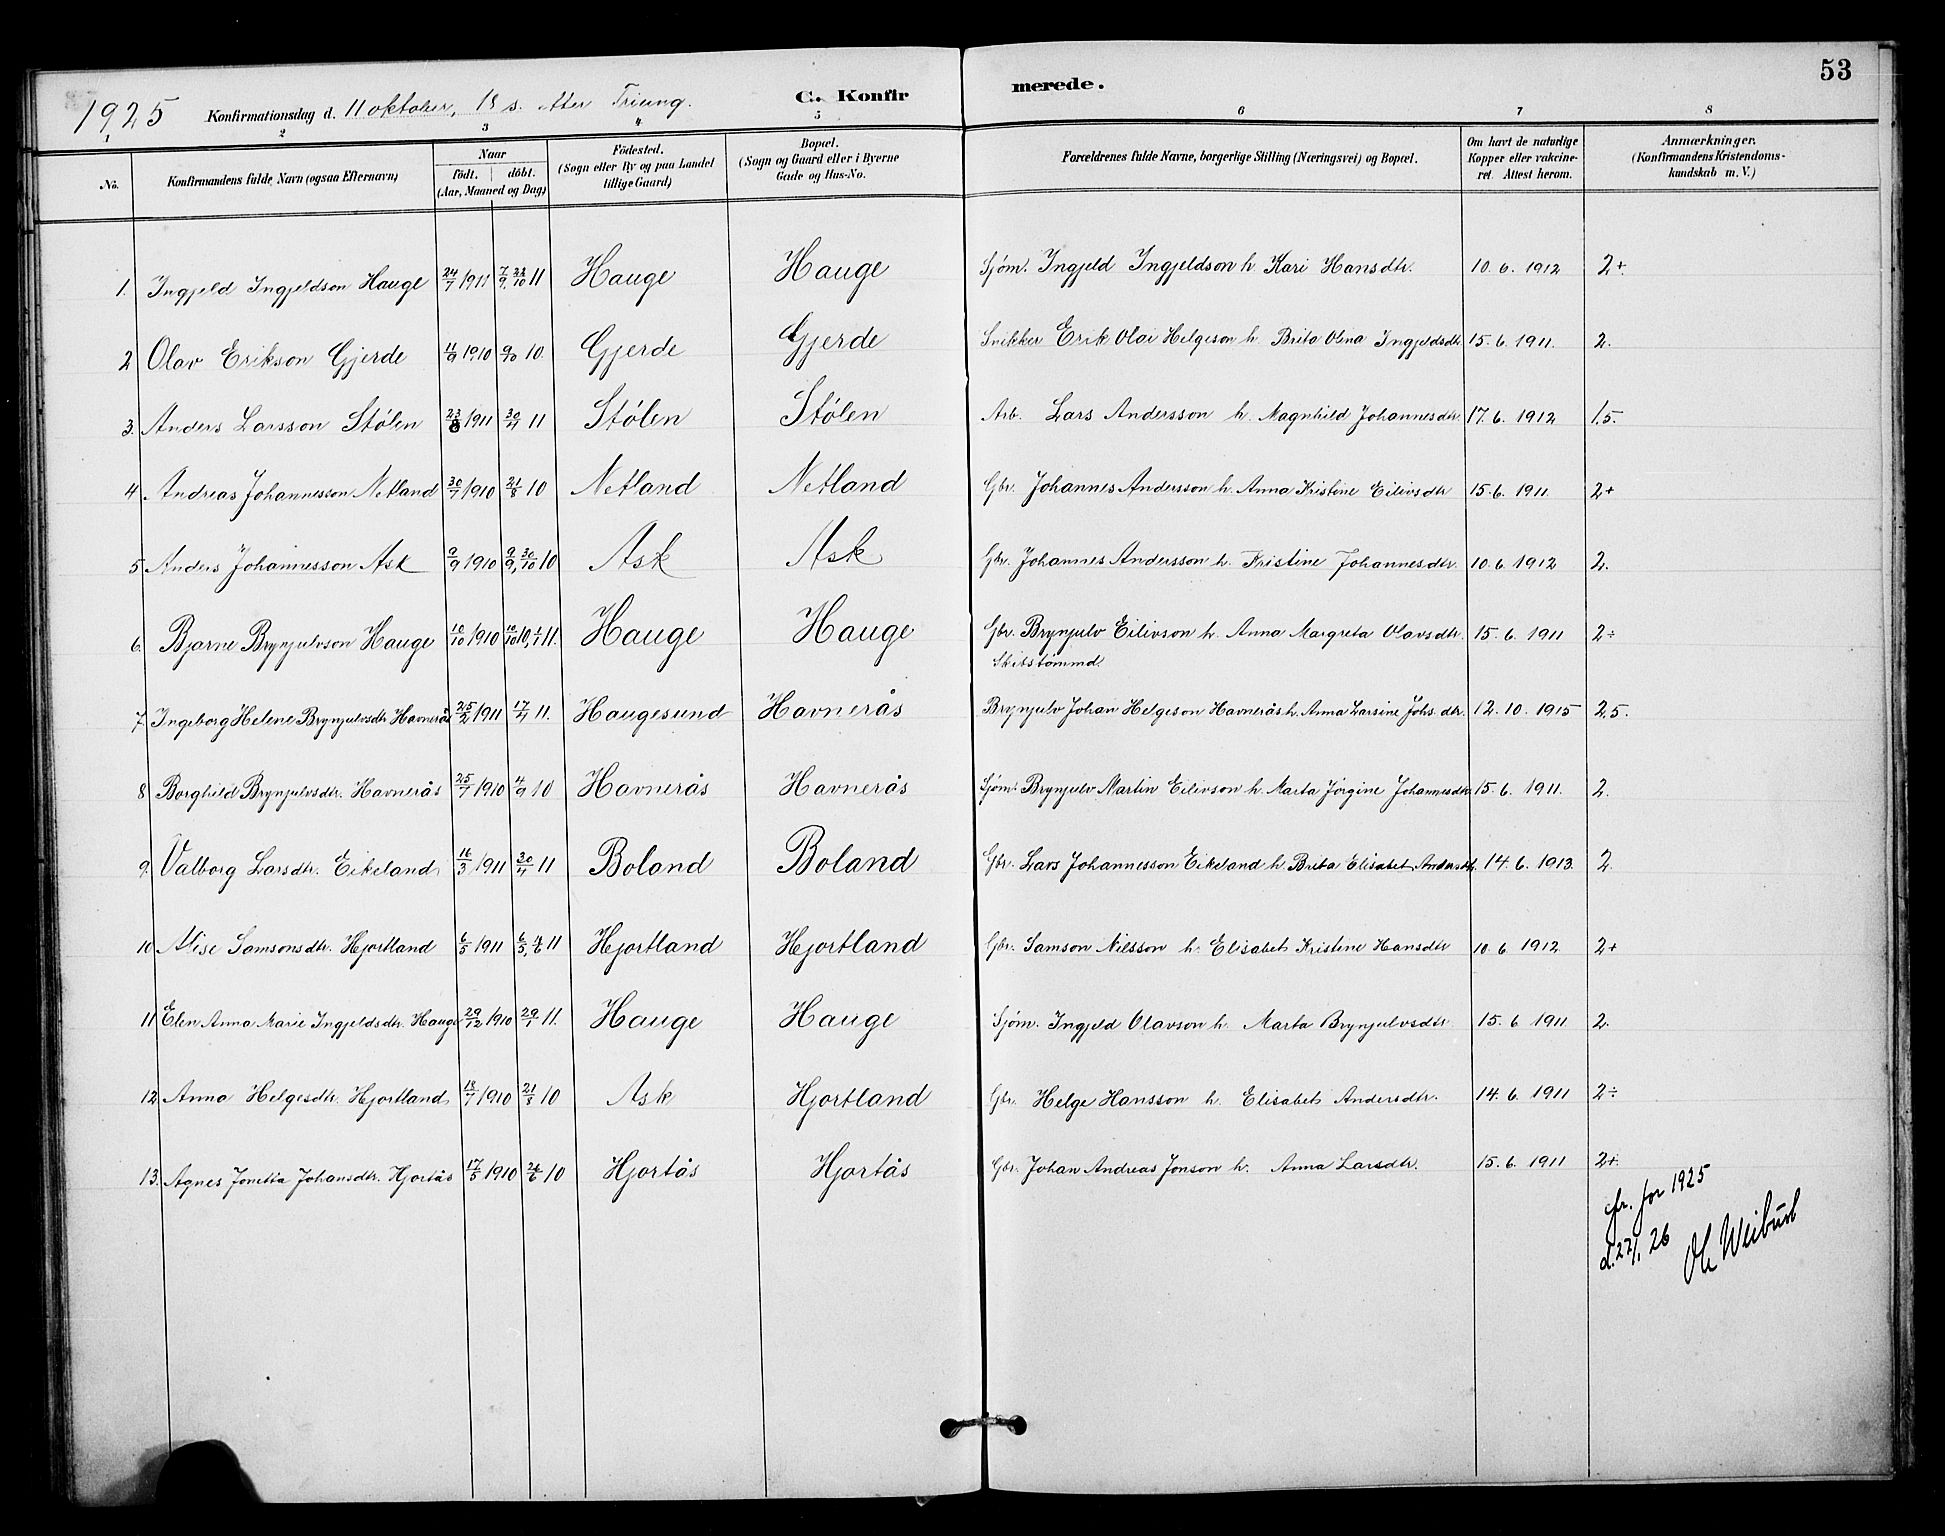 53
1925 Konfirmationsdag d. 11 oktober, 18 s. etter Triung. C. Konfirmerede.
1 2 3 4 5 6 7 8
No. Konfirmandens fulde Navn (ogsaa Efternavn) Naar født. døbt. (Aar, Maaned og Dag) Fødested. (Sogn eller By og paa Landet tillige Gaard) Bopæl. (Sogn og Gaard eller i Byerne Gade og Hus-No. Forældrenes fulde Navne, borgerlige Stilling (Næringsvei) og Bopæl. Om havt de naturlige Kopper eller vakcineret. Attest herom. Anmærkninger. (Konfirmandens Kristendomskundskab m. V.)
1. Ingjeld Ingjeldson Hauge 24/7 1911 7/9, 22/10 11 Hauge Hauge Sjøm. Ingjeld Ingjeldson h. Kari Hansdtr. 10. 6. 1912 2+.
2 Olav Erikson Gjerde 11/9 1910 9/10 10. Gjerde Gjerde Snikker Erik Olai Helgeson h. Brita Olina Ingjeldsdtr 15. 6. 1911. 2.
3. Anders Larsson Stølen 23/8 1911 30/4 11 Stølen Stølen Arb. Lars Andersson h. Magnhild Johannesdtr. 17. 6. 1912 1,5.
4. Andreas Johannesson Netland 30/7 1910 21/8 10 Netland Netland Gbr. Johannes Andersson h. Anna Kristine Eilivsdtr 15. 6. 1911. 2+
5 Anders Johannesson Ask 9/9 1910 9/9, 30/10 10 Ask Ask Gbr. Johannes Andersson h. Kristine Johannesdtr. 10. 6. 1912 2.
6. Bjarne Brynjulvson Hauge 10/10 1910 10/10 10, 1/1 11. Hauge Hauge Gbr. Brynjulv Eilivson h. Anna Margreta Olavsdtr. 15. 6. 1911 2÷
Skibstømmd.
7. Ingeborg Helene Brynjulvsdtr Havnerås 25/2 1911 17/4 11. Haugesund Havnerås Brynjulv Johan Helgeson Havnerås h. Anna Larsine Johs. dtr. 12. 10. 1915 2,5.
8 Borghild Brynjulvsdtr. Havnerås 25/7 1910 4/9 10 Havnerås Havnerås Sjøm. Brynjulv Martin Eilivson h. Marta Jørgine Johannesdtr. 15. 6. 1911. 2.
9. Valborg Larsdtr. Eikeland 16/3 1911 30/4 11 Boland Boland Gbr. Lars Johannesson Eikeland h. Brita Elisabet Andersdtr. 14. 6. 1913. 2.
10 Alise Samsonsdtr. Hjortland 6/5 1911 6/5, 4/6 11 Hjortland Hjortland Gbr. Samson Nilsson h. Elisabet Kristine Hansdtr 10. 6. 1912. 2+
11 Elen Anna Marie Ingjeldsdtr. Hauge 29/12 1910 29/1 11. Hauge Hauge Sjøm. Ingjeld Olavson h. Marta Brynjulvsdtr 15. 6. 1911 2.
12. Anna Helgesdtr. Hjortland 18/7 1910 21/8 10 Ask Hjortland Gbr. Helge Hansson h. Elisabet Andersdtr. 14. 6. 1911 2÷
13. Agnes Jonetta Johansdtr. Hjortås 17/5 1910 26/6 10 Hjortås Hjortås Gbr. Johan Andreas Jonson h. Anna Larsdtr. 15. 6. 1911 2+.
for 1925
d. 22/1 26
Weibust